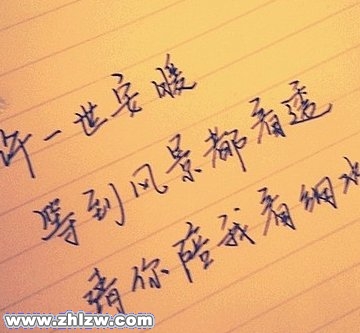 许一世安暖
等到风景都看透
请你陪我看细水
www.zhlzw.com